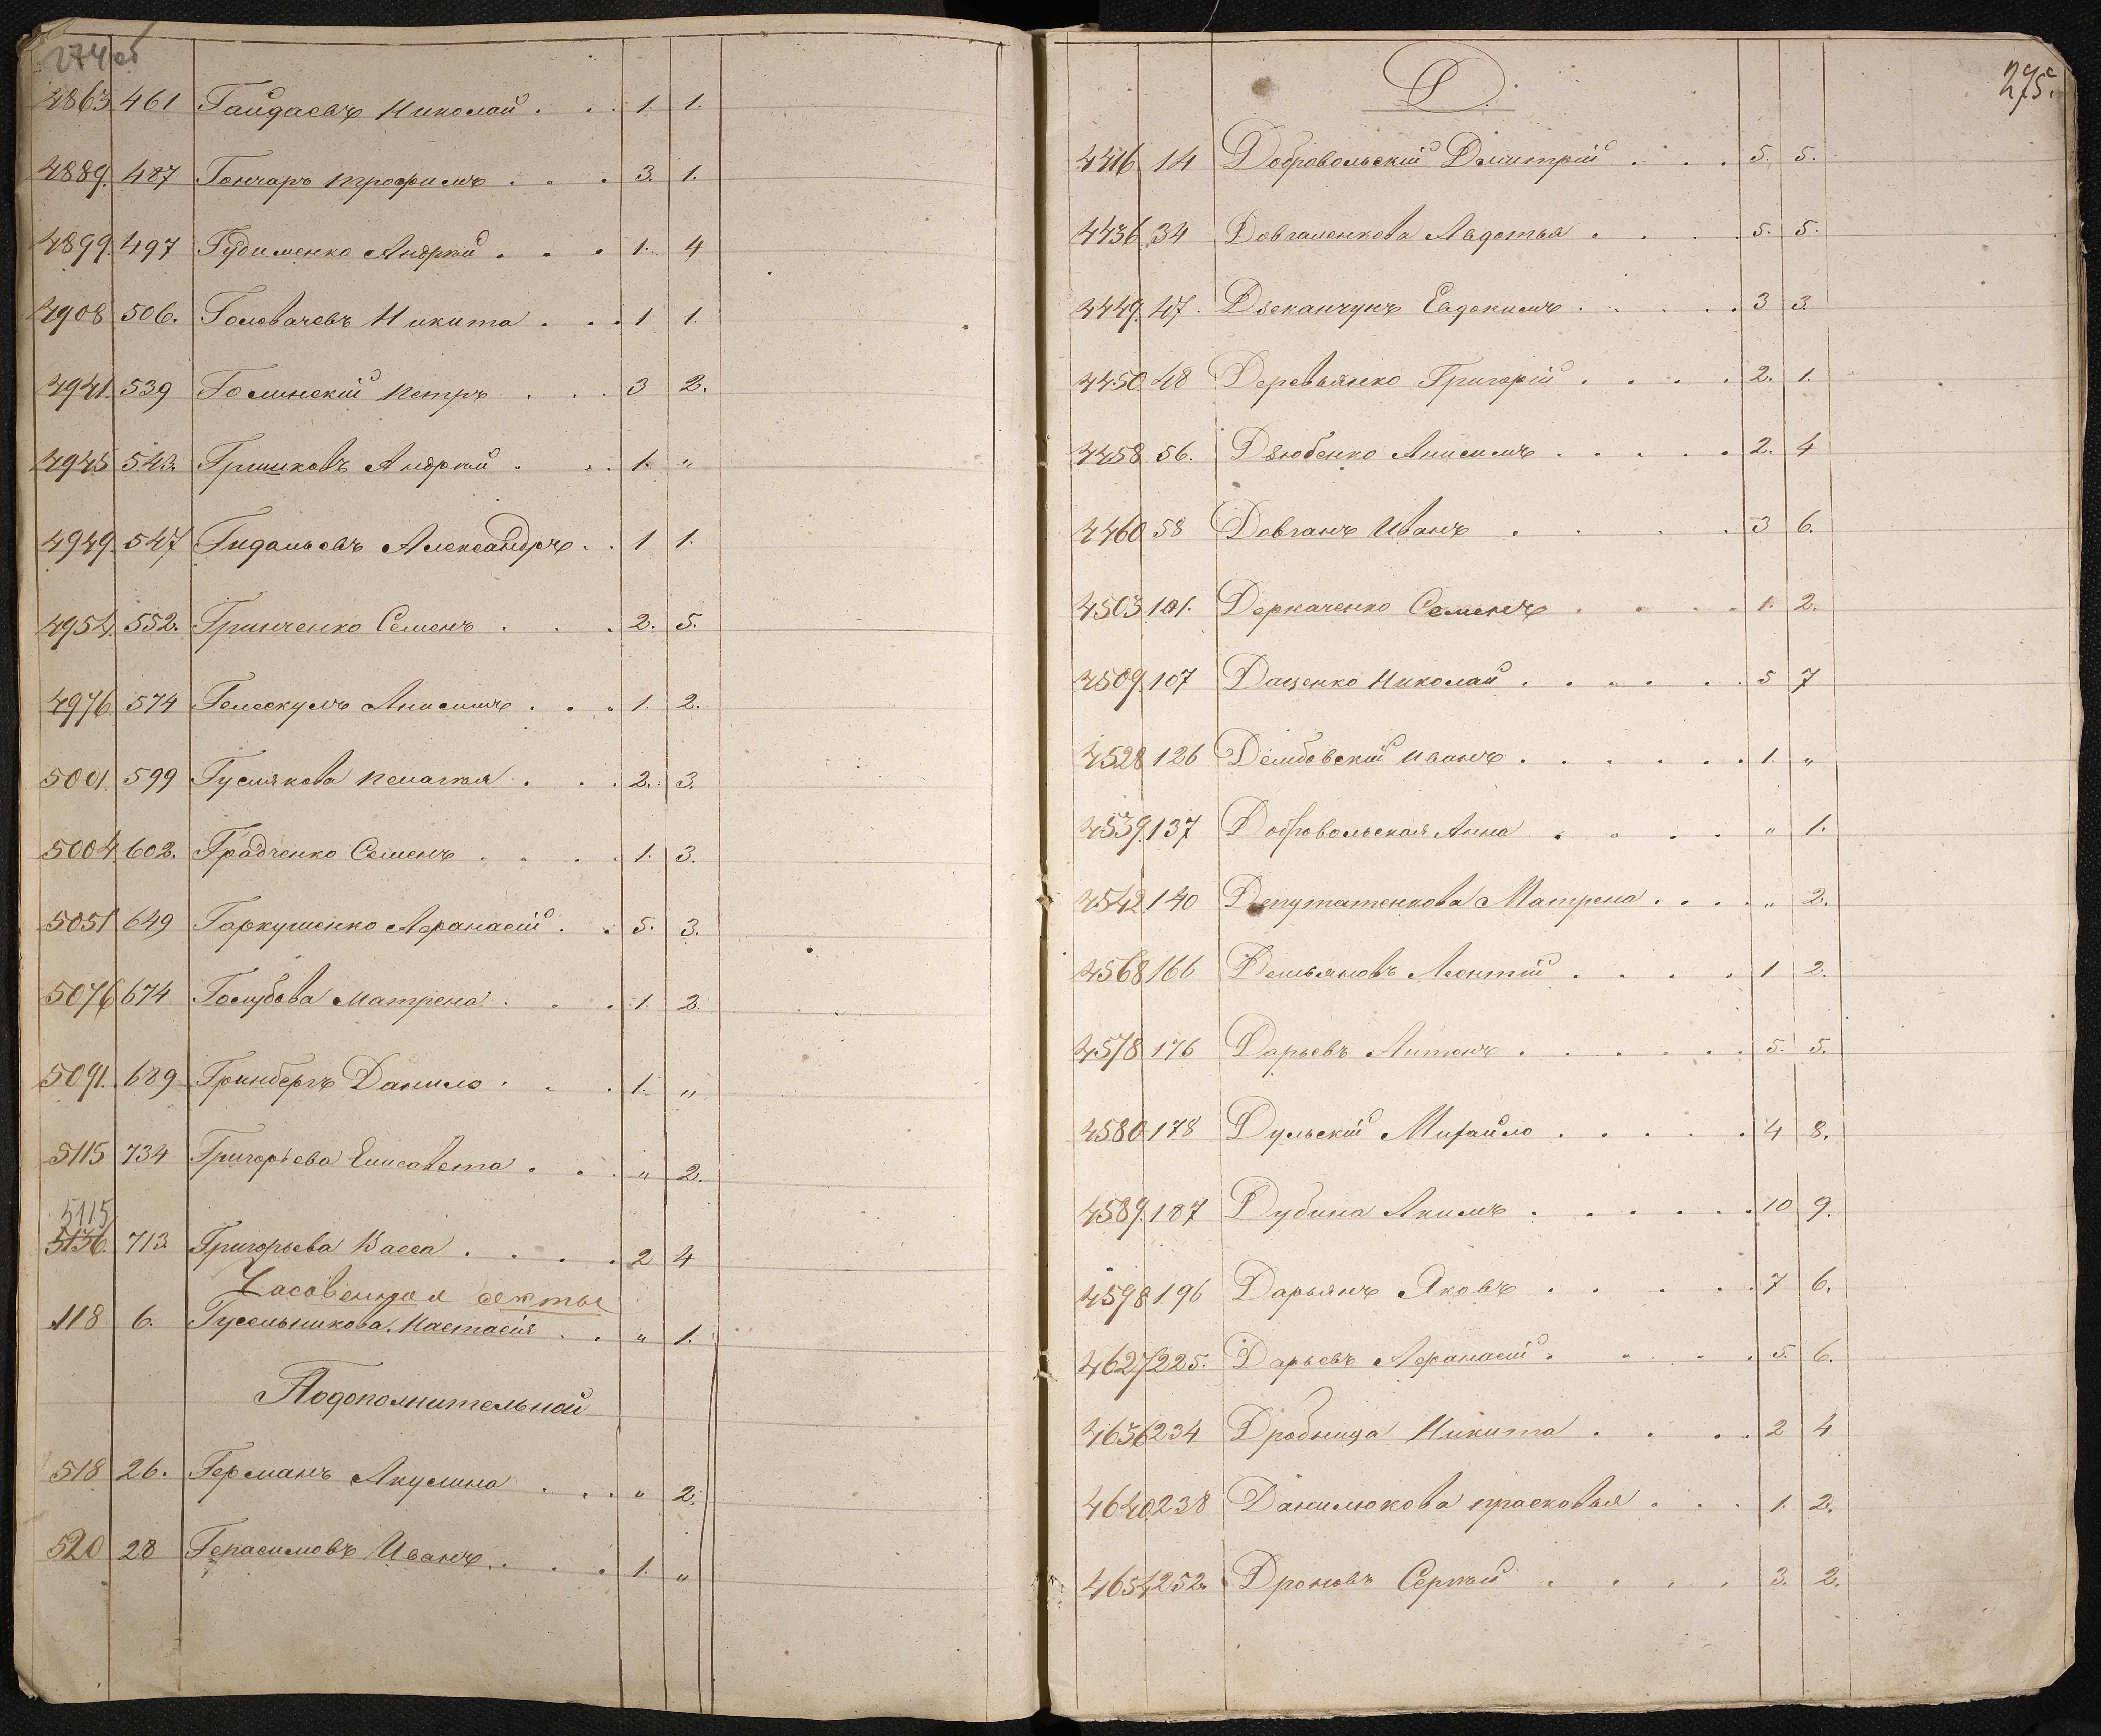 274 об
4863. 461 Гайдаевъ Николай . . . 1. 1.
4889. 487 Гончаръ Трофимъ . . . 3. 1.
4899. 497 Гудименко Андрей . . . 1. 4
4908 506. Головачевъ Никита . . . 1 1.
4941. 539 Голинскій Петръ . . . 3 2.
4945 543. Гришковъ Андрей . . . 1. „
4949. 547 Гидальевъ Александръ . . 1 1.
4954. 552. Гринченко Семенъ . . . 2. 5.
4976. 574 Гелескулъ Анисимъ . . . 1. 2.
5001. 599 Гуслякова Пелагея . . . 2. 3.
5004. 602. Градченко Семенъ . . . . 1. 3.
5051 649 Гаркушенко Афанасій . . 5. 3.
5076 674 Голубова Матрена . . . 1. 2.
5091. 689 Гринбергъ Данило . . . 1. „
5115 734 Григорьева Елисавета . . . „ 2.
5115
5136. 713. Григорьева Васса . . . . 2 4
Часовенная секты
118 6. Гусельникова Настасія . . „ 1.
Подополнительной
518 26. Германъ Акулина . . . „ 2.
520 28 Герасимовъ Иванъ . . . 1. „
275.
Д.
4416 14 Добровольскій Дмитрій . . . 5. 5.
4436 34 Довгаленкова Авдотья . . . . 5. 5.
4449. 47. Дзекančунъ Евдокимъ . . . . . 3 3
4450. 48 Деревьянко Григорій . . . . 2. 1.
4458 56. Дзюбенко Анисимъ . . . . . 2. 4
4460 58 Довганъ Иванъ . . . . 3 6.
4503 101. Деркаченко Семенъ . . . . 1. 2.
4509. 107 Даценко Николай . . . . . . 5 7
4528 126 Дембовскій Иванъ . . . . . . 1. „
4539. 137 Добровольская Анна . . . . „ 1.
4542 140 Депутатенкова Матрена . . . . „ 2.
4568 166 Демьяновъ Леонтій . . . . 1 2.
4578 176 Дарьевъ Антонъ . . . . . . 5. 5.
4580 178 Дульскій Михайло . . . . . 4 8.
4589. 187 Дубина Акимъ . . . . . . 10 9.
4598 196 Дарьянъ Яковъ . . . . . 7 6.
4627 225. Дарьевъ Афанасій . . . . 5. 6.
4636 234 Дробница Никита . . . . 2 4
4640. 238 Данилюкова Прасковья . . . 1. 2.
4654 252. Дроновъ Сергей . . . . 3. 2.